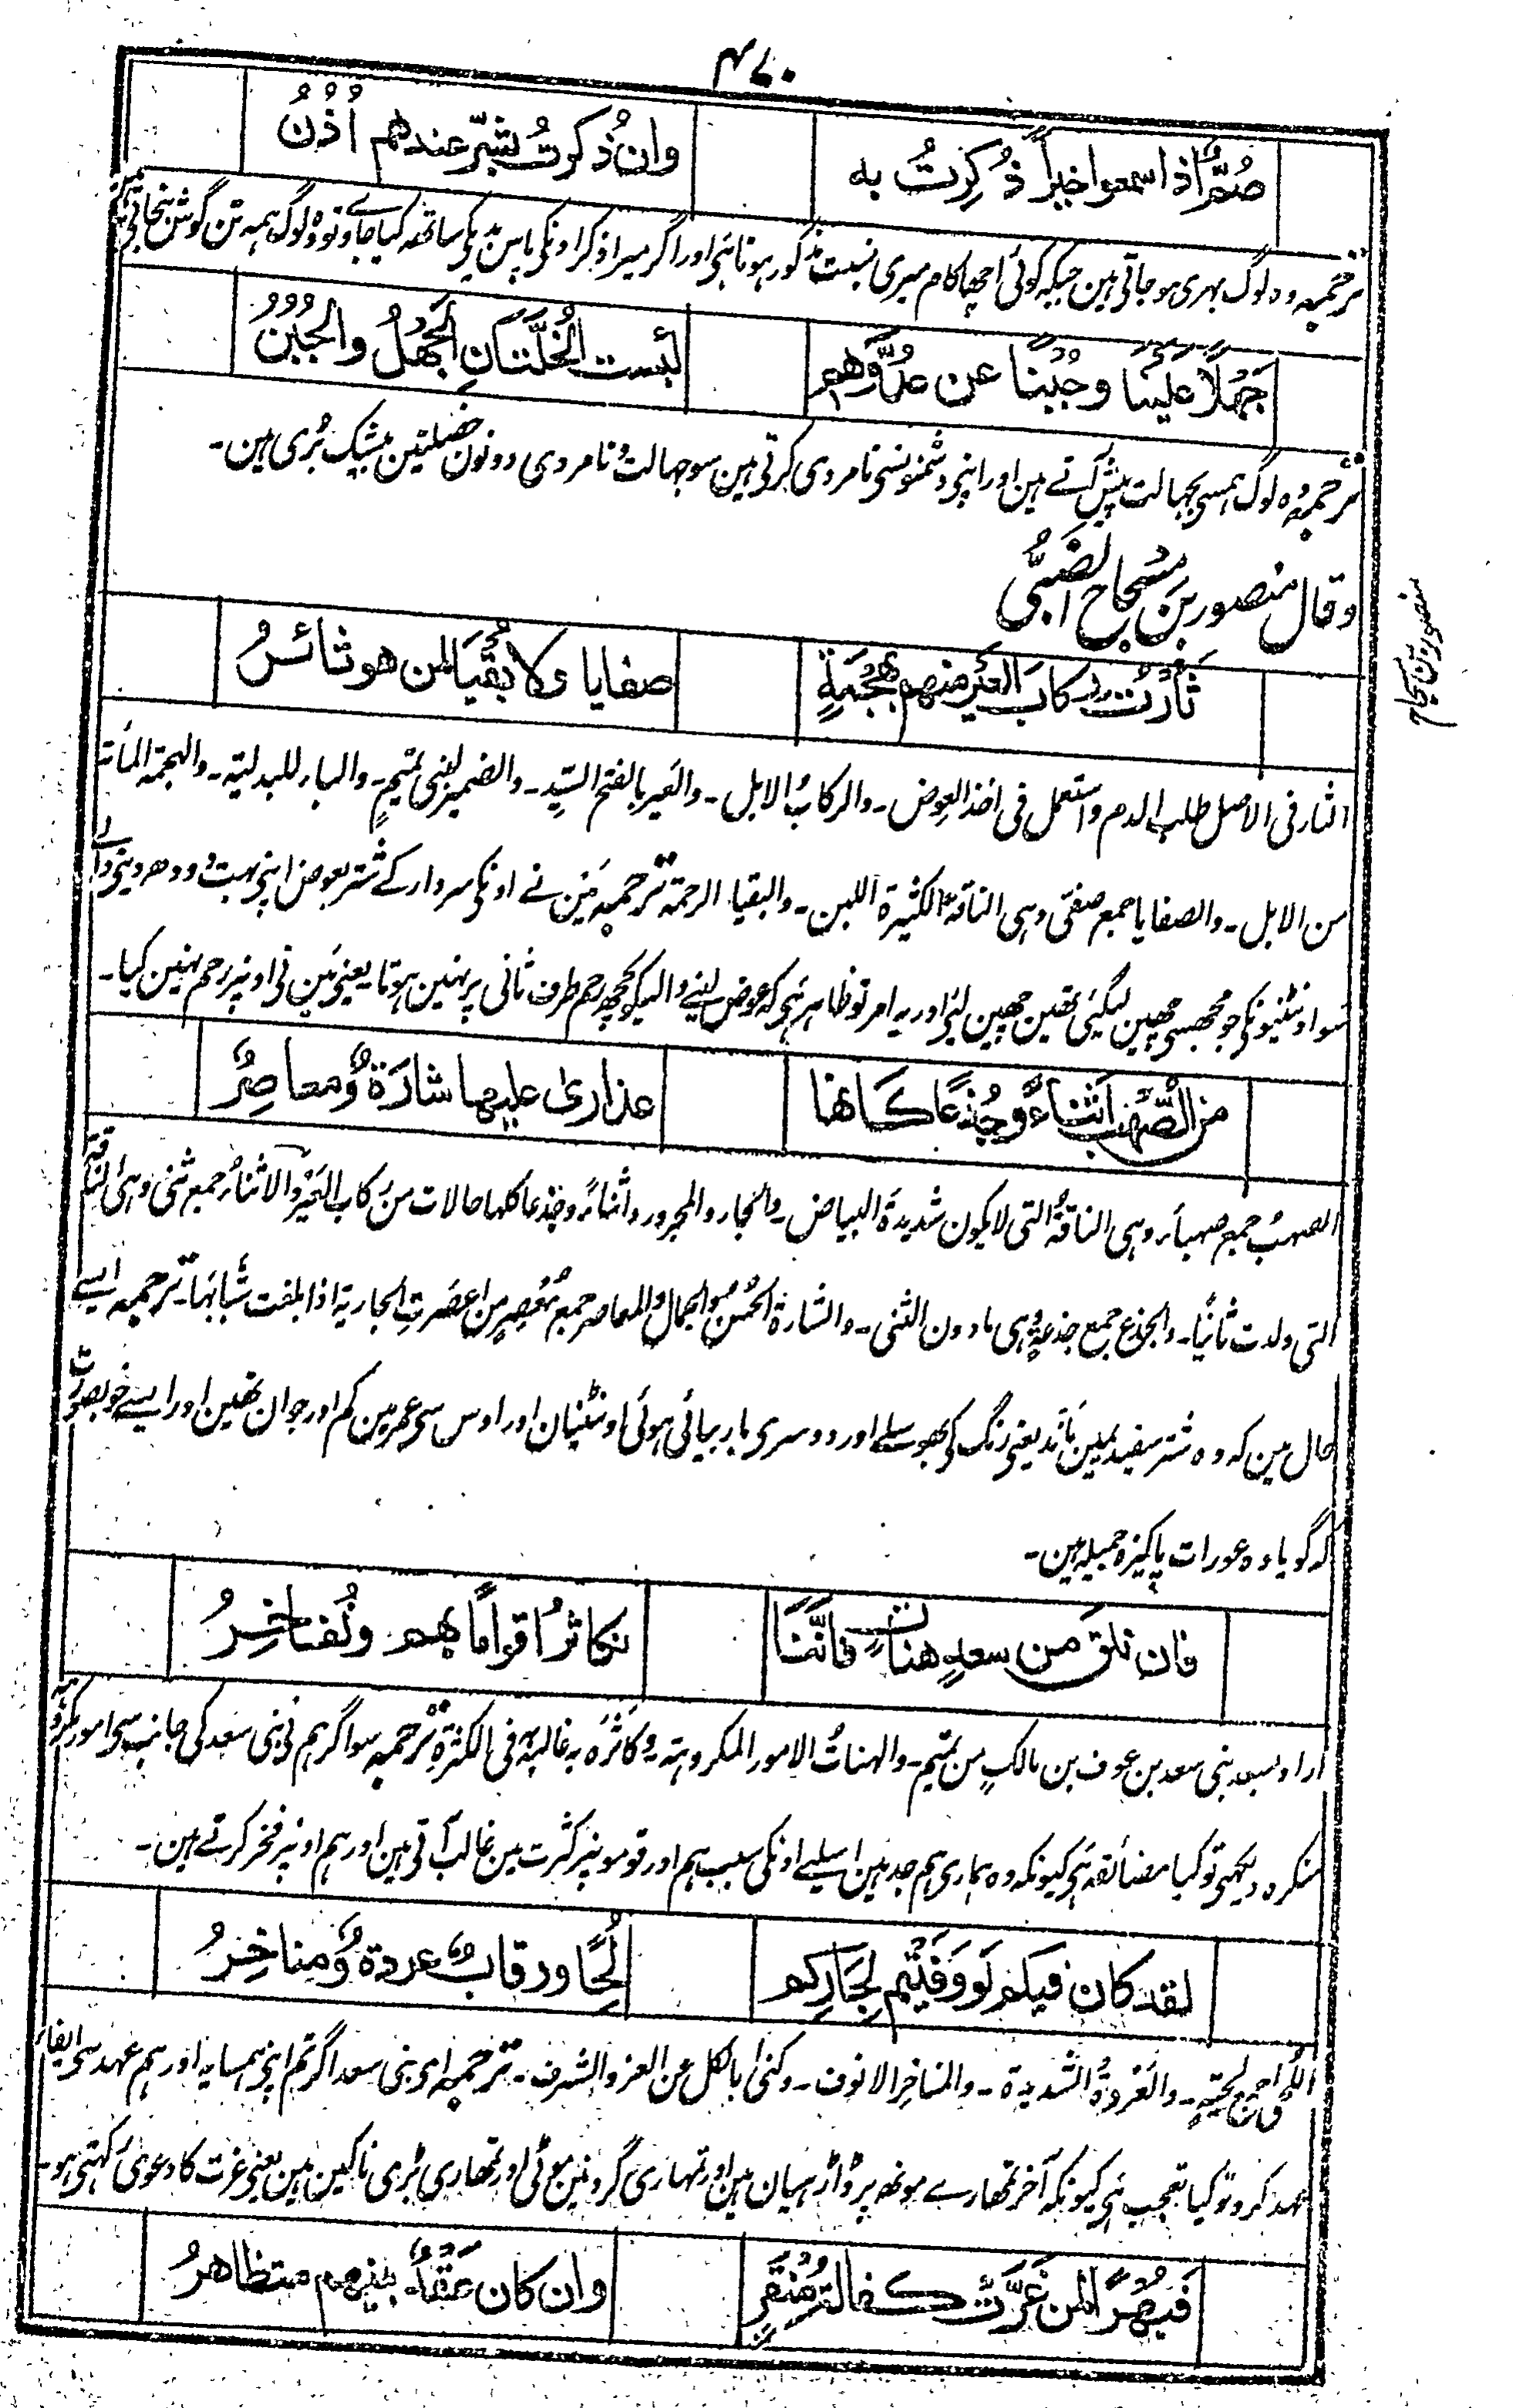 ۴۷۰
صُمٌّ اذا سمعوا خیراً ذُکِرتُ به
وان ذُکرتُ بشرٍّ عندهم اُذُنُ
ترجمہ وہ لوگ بہری ہوجاتی ہین جبکہ کوئی اچھا کام میری نسبت مذکور ہوتا ہی اور اگر میرا ذکر اونکی پاس بدیکی ساتھہ کیا جاوے تو وہ لوگ ہمہ تن گوش بنجاتی ہین
جَهلاً علینا وجُبناً عن عدُوِّهم
لبئست الخُلَّتانِ الجهلُ والجُبُنُ
ترجمہ وہ لوگ ہمسی بجہالت پیش آتے ہین اور اپنی دشمنونسی نامردی کرتی ہین سو جہالت و نامردی دونون خصلتین بیشک بُری ہین۔
وقال منصور بن مسجاح الضبّیُّ
منصور بن مسجاح
ثأرتُ رکابَ العَیر منهم بهَجمةٍ
صفایا ولا بُقیَا لمن هو ثائرُ
الثار فی الاصل طلب الدم واستعمل فی اخذ العِوض۔ والرکابُ الابل۔ والعَیر بالفتح السّیّد۔ والضمیر لبنی تمیمٍ۔ والباء للبدلیة۔ والہجمة المأتہ
من الابل۔ والصفایا جمع صفیّ وہی الناقة الکثیرة اللبن۔ والبقیا الرحمة ترجمہ مَین نے اونکی سردار کے شتر بعوض اپنی بہت دودھ دینی والے
سو اونٹنیونکی جو مجھسی چھین لیگئی تھین چھین لئی اور یہ امر تو ظاہر ہی کہ عوض لینے والیکو کچھ رحم طرف ثانی پر نہین ہوتا یعنی مَین نی اونپر رحم نہین کیا۔
من الصُّهب اَثناءً وجُذعاً کانها
عذاریٰ علیها شارَةٌ ومعاصِرُ
الصہبُ جمع صہباء وہی الناقة التی لایکون شدیدة البیاض۔ والجار والمجرور واثناءً وجذعا کلہا حالات من رکاب العَیر والاثناءُ جمع ثنی وہی الناقة
التی ولدت ثانیًا۔ والجذع جمع جذعة وہی مادون الثنی۔ والشارة الحُسن والجمال والمعاصر جمع مُعصِرٍ من اعصَرتِ الجاریة اذا بلغت شبابہا۔ ترجمہ ایسے
حال مین کہ وہ شتر سفید یمین مانند یعنی رنگ کی بھوسلے اور دوسری بار بیائی ہوئی اونٹنیان اور اوس سی عمر مین کم اور جوان تھین اور ایسے خوبصورت
کہ گویا وہ عورات پاکیزہ جمیلہ ہین۔
فان نلقَ من سعدٍ هناتٍ فانَّنا
نکاثرُ اقواماً بهم ونُفاخِرُ
اراد بسعد بنی سعد بن عوف بن مالکٍ من تمیم۔ والہناتُ الامور المکروہتہ۔ وکاثرَہ بہ غالبہ فی الکثرة ترجمہ سو اگر ہم نی بنی سعد کی جانب سی امور مکروہہ
منکرہ دیکھی تو کیا مضائقہ ہی کیونکہ وہ ہماری ہم جد ہین اسلیے اونکی سبب ہم اور قومونپر کثرت مین غالب آتی ہین اور ہم اونپر فخر کرتے ہین۔
لقد کان فیکم لو وَفَیتُم لجارکم
لُحًا ورقابٌ عردةٌ ومناخِرُ
اللُّحیٰ جمع لحیة۔ والعَردةُ الشدیدة۔ والمناخِر الانوف۔ وکنیٰ بالکل عن العز والشرف۔ ترجمہ ای بنی سعد اگر تم اپنی ہمسایہ اور ہم عہد سی ایفاء
عہد کرو تو کیا تعجب ہی کیونکہ آخر تمھارے مونھہ پر ڈاڑہیان ہین اور تمہاری گردنین موٹی اور تمھاری بڑی ناکین ہین یعنی عزت کا دعویٰ رکھتی ہو۔
فَبُهراً لمن غرَّت کفالةُ مِنقَرٍ
وان کان عَقدٌ بینهم متظاهرُ